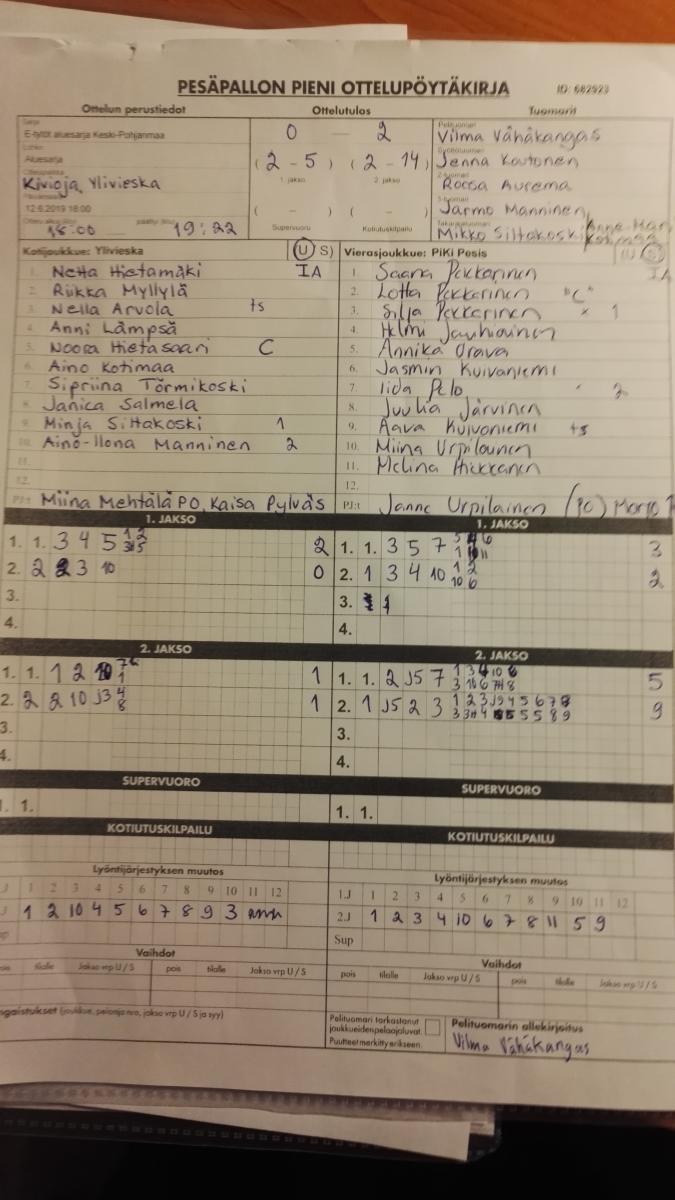 PESÄPALLON PIENI OTTELUPÖYTÄKIRJA
ID: 682923
Ottelun perustiedot
Ottelutulos
Tuomarit
Sarja
E-tytöt aluesarja Keski-Pohjanmaa
Lohko
Aluesarja
Kivioja, Ylivieska
12.6.2019 18:00
18:00 19:22
0 – 2
(2 – 5) (2 – 14)
1. jakso 2. jakso
( – ) ( – )
Supervuoro Kotiutuskilpailu
Pelituomari
Vilma Vähäkangas
Jenna Kautonen
2-tuomari
Roosa Aurema
3-tuomari
Jarmo Manninen
Takarajatuomari
Mikko Siltakoski
Kotijoukkue: Ylivieska (U S)
1. Netta Hietamäki IA
2. Riikka Myllylä
3. Nella Arvola ts
4. Anni Lämpsä
5. Noora Hietasaari C
6. Aino Kotimaa
7. Sipriina Törmikoski
8. Janica Salmela
9. Minja Siltakoski 1
10. Aino-Ilona Manninen 2
11.
12.
PJ:t Miina Mehtälä PO, Kaisa Pylväs
Vierasjoukkue: PiKi Pesis (U S)
1. Saana Pekkarinen IA
2. Lotta Pekkarinen "C"
3. Silja Pekkarinen x 1
4. Helmi Jauhiainen
5. Annika Orava
6. Jasmin Kuivaniemi
7. Iida Pelo 2
8. Juulia Järvinen
9. Aava Kuivaniemi ts
10. Miina Urpilainen
11. Melina Hiekkanen
12.
PJ:t Janne Urpilainen (PO)
1. JAKSO
1. 1. 3 4 5 2
2. 2 2 3 10 0
3.
4.
1. JAKSO
1. 1. 3 5 7 3
2. 1 3 4 10 2
3. 1
4.
2. JAKSO
1. 1. 1 2 10 1
2. 2 2 10 J3 4 8 1
3.
4.
2. JAKSO
1. 1. 2 J5 7 5
2. 1 J5 2 3 9
3.
4.
SUPERVUORO
1. 1.
SUPERVUORO
1. 1.
KOTIUTUSKILPAILU
KOTIUTUSKILPAILU
Lyöntijärjestyksen muutos
J 1 2 3 4 5 6 7 8 9 10 11 12
J 1 2 10 4 5 6 7 8 9 3
Lyöntijärjestyksen muutos
1.J 1 2 3 4 5 6 7 8 9 10 11 12
2.J 1 2 3 4 10 6 7 8 11 5 9
Sup
Vaihdot
pois tilalle Jakso vrp U / S pois tilalle Jakso vrp U / S
Vaihdot
pois tilalle Jakso vrp U / S pois tilalle Jakso vrp U / S
ngaistukset (joukkue, pelaaja nro, jakso vrp U / S ja syy)
Pelituomari tarkastanut
joukkueiden pelaajaluvat
Puutteet merkitty erikseen.
Pelituomarin allekirjoitus
Vilma Vähäkangas